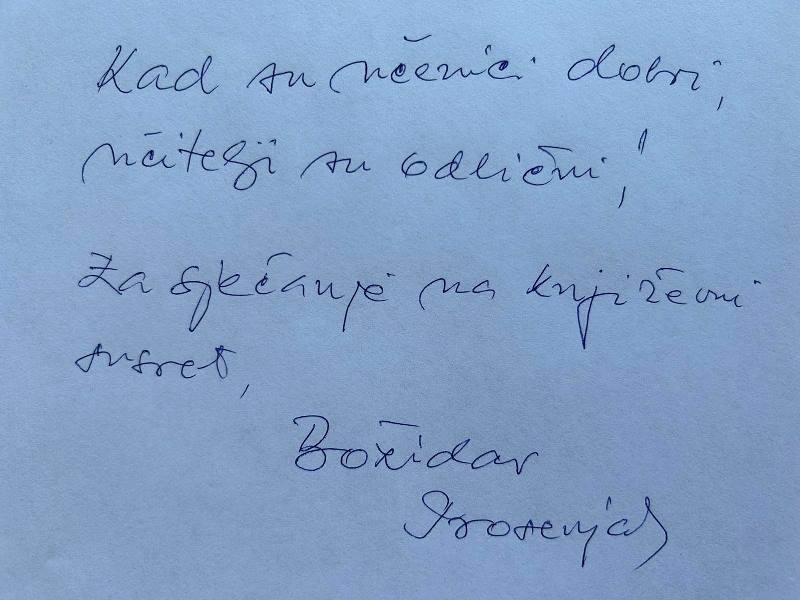 Kad su učenici dobri,
učitelji su odlični!
Za sjećanje na književni
susret,
Božidar
Prosenjak